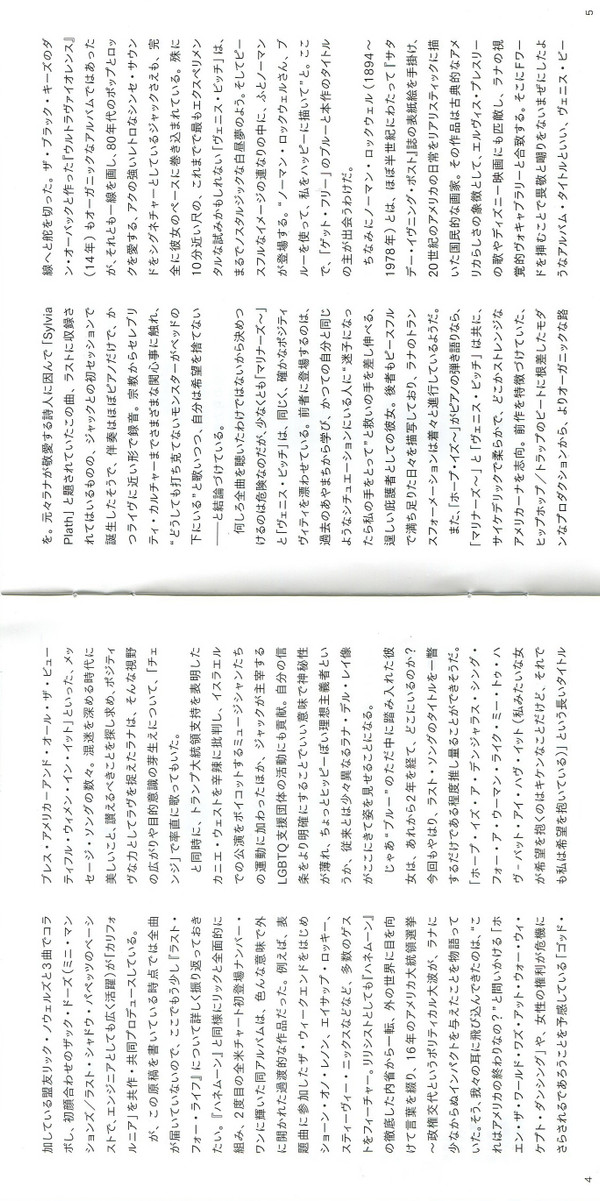 加している盟友リック・ノウェルズと3曲でコラ
ボし、初顔合わせのザック・ドーズ（ミニ・マン
ションズ／ラスト・シャドウ・パペッツのベーシ
ストで、エンジニアとしても広く活躍）が「カリフォ
ルニア」を共作・共同プロデュースしている。
が、この原稿を書いている時点では全曲
が届いていないので、ここでもう少し『ラスト・
フォー・ライフ』について詳しく振り返っておき
たい。『ハネムーン』と同様にリックと全面的に
組み、2度目の全米チャート初登場ナンバー・
ワンに輝いた同アルバムは、色んな意味で外
に開かれた過渡的な作品だった。例えば、表
題曲に参加したザ・ウィークエンドをはじめ
ショーン・オノ・レノン、エイサップ・ロッキー、
スティーヴィー・ニックスなどなど、多数のゲス
トをフィーチャー。リリシストとしても『ハネムーン』
の徹底した内省から一転、外の世界に目を向
けて言葉を綴り、16年のアメリカ大統領選挙
〜政権交代というポリティカル大波が、ラナに
少なからぬインパクトを与えたことを物語って
いた。そう、我々の耳に飛び込んできたのは、“こ
れはアメリカの終わりなの？”と問いかける「ホ
エン・ザ・ワールド・ワズ・アット・ウォー・ウィ・
ケプト・ダンシング」や、女性の権利が危機に
さらされるであろうことを予感している「ゴッド・
ブレス・アメリカーアンド・オール・ザ・ビュー
ティフル・ウィメン・イン・イット」といった、メッ
セージ・ソングの数々。混迷を深める時代に
美しいこと、讃えるべきことを探し求め、ポジティ
ヴな力としてラヴを捉えたラナは、そんな視野
の広がりや目的意識の芽生えについて、「チェ
ンジ」で率直に歌ってもいた。
と同時に、トランプ大統領支持を表明した
カニエ・ウェストを辛辣に批判し、イスラエル
での公演をボイコットするミュージシャンたち
の運動に加わったほか、ジャックが主宰する
LGBTQ支援団体の活動にも貢献。自分の信
条をより明確にすることでいい意味で神秘性
が薄れ、ちょっとヒッピーぽい理想主義者とい
うか、従来とは少々異なるラナ・デル・レイ像
がここにきて姿を見せることになる。
じゃあ“ブルー”のただ中に踏み入れた彼
女は、あれから2年を経て、どこにいるのか？
今回もやはり、ラスト・ソングのタイトルを一瞥
するだけである程度推し量ることができそうだ。
「ホープ・イズ・ア・デンジャラス・シング・
フォー・ア・ウーマン・ライク・ミー・トゥ・ハ
ヴ－バット・アイ・ハヴ・イット（私みたいな女
が希望を抱くのはキケンなことだけど、それで
も私は希望を抱いている）」という長いタイトル
を。元々ラナが敬愛する詩人に因んで「Sylvia
Plath」と題されていたこの曲、ラストに収録さ
れてはいるものの、ジャックとの初セッションで
誕生したそうで、伴奏はほぼピアノだけで、か
つライヴに近い形で録音。宗教からセレブリ
ティ・カルチャーまでさまざまな関心事に触れ、
“どうしても打ち克てないモンスターがベッドの
下にいる”と歌いつつ、自分は希望を捨てない
――と結論づけている。
何しろ全曲を聴いたわけではないから決めつ
けるのは危険なのだが、少なくとも「マリナーズ〜」
と「ヴェニス・ビッチ」は、同じく、確かなポジティ
ヴィティを漂わせている。前者に登場するのは、
過去のあやまちから学び、かつての自分と同じ
ようなシチュエーションにいる人に“迷子になっ
たら私の手をとって”と救いの手を差し伸べる、
逞しい庇護者としての彼女。後者もピースフル
で満ち足りた日々を描写しており、ラナのトラン
スフォーメーションは着々と進行しているようだ。
また、「ホープ・イズ〜」がピアノの弾き語りなら、
「マリナーズ〜」と「ヴェニス・ビッチ」は共に、
サイケデリックで柔らかで、どこかストレンジな
アメリカーナを志向。前作を特徴づけていた、
ヒップホップ／トラップのビートに根差したモダ
ンなプロダクションから、よりオーガニックな路
線へと舵を切った。ザ・ブラック・キーズのダ
ン・オーバックと作った『ウルトラヴァイオレンス』
（14年）もオーガニックなアルバムではあった
が、それとも一線を画し、80年代のポップとロッ
クを愛する、アクの強いレトロなシンセ・サウン
ドをシグネチャーとしているジャックさえも、完
全に彼女のペースに巻き込まれている。殊に
10分近い尺の、これまでで最もエクスペリメン
タルな試みかもしれない「ヴェニス・ビッチ」は、
まるでノスタルジックな白昼夢のよう。そしてピー
スフルなイメージの連なりの中に、ふとノーマン
が登場する。“ノーマン・ロックウェルさん、ブ
ルーを使って、私をハッピーに描いて”と。ここ
で、「ゲット・フリー」のブルーと本作のタイトル
の主が出会うわけだ。
ちなみにノーマン・ロックウェル（1894〜
1978年）とは、ほぼ半世紀にわたって『サタ
デー・イヴニング・ポスト』誌の表紙絵を手掛け、
20世紀のアメリカの日常をリアリスティックに描
いた国民的な画家。その作品は古典的なアメ
リカらしさの象徴として、エルヴィス・プレスリー
の歌やディズニー映画にも匹敵し、ラナの視
覚的ヴォキャブラリーと合致する。そこにFワー
ドを挿むことで畏敬と嘲りをないまぜにしたよ
うなアルバム・タイトルといい、ヴェニス・ビー
4
5